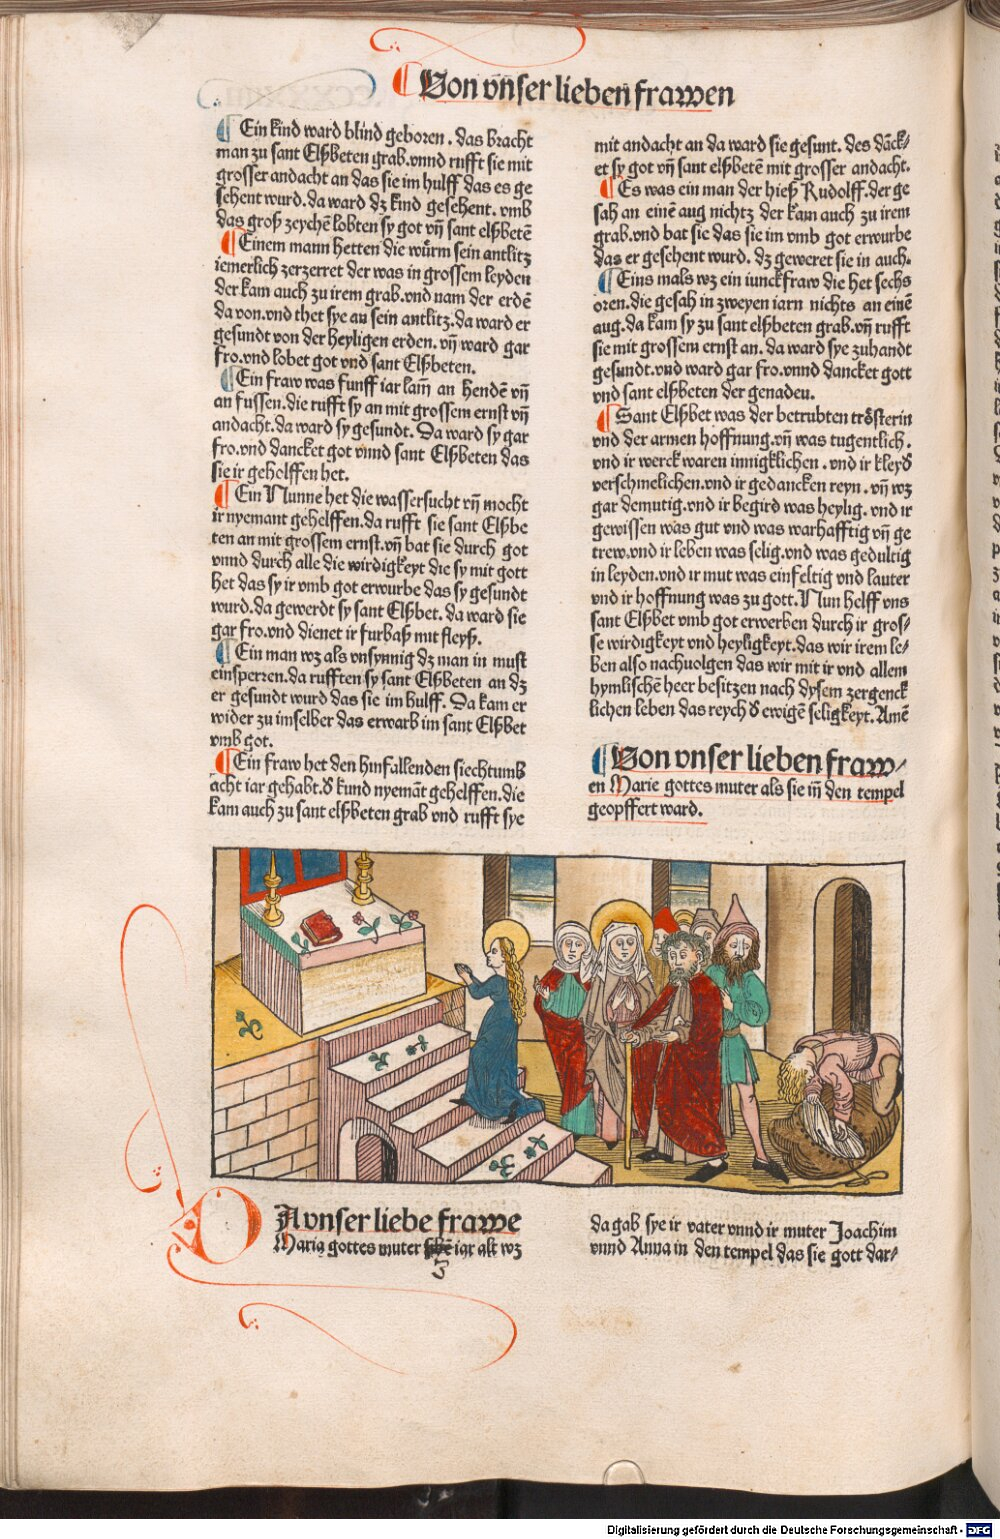 Von vnser lieben frawen
Ein kind ward blind geboren. das bracht
man zu sant Elßbeten grab. vnnd rufft sie mit
grosser andacht an das sie im hulff das es ge
sehent wurd. da ward dz kind gesehent. vmb
das groß zeychē lobten sy got vñ sant elßbetē
Einem mann hetten die wuͤrm sein antlitz
iemerlich zerzerret der was in grossem leyden
der kam auch zu irem grab. vnd nam der erdē
da von. vnd thet sye an sein antlitz. da ward er
gesundt von der heyligen erden. vñ ward gar
fro. vnd lobet got vnd sant Elßbeten.
Ein fraw was funff iar lam̄ an hendē vñ
an fussen. die rufft sy an mit grossem ernst vñ
andacht. da ward sy gesundt. Da ward sy gar
fro. vnd dancket got vnnd sant Elßbeten das
sie ir geholffen het.
Ein Nunne het die wassersucht vñ mocht
ir nyemant gehelffen. da rufft sie sant Elßbe
ten an mit grossem ernst. vñ bat sie durch got
vnnd durch alle die wirdigkeyt die sy mit gott
het das sy ir vmb got erwurbe das sy gesundt
wurd. da gewerdt sy sant Elßbet. da ward sie
gar fro. vnd dienet ir furbaß mit fleyß.
Ein man wz als vnsynnig dz man in must
einsperren. da rufften sy sant Elßbeten an dz
er gesundt wurd das sie im hulff. Da kam er
wider zu imselber das erwarb im sant Elßbet
vmb got.
Ein fraw het den hinfallenden siechtumb
acht iar gehabt. ď kund nyemāt gehelffen. die
kam auch zu sant elßbeten grab vnd rufft sye
mit andacht an da ward sie gesunt. des dāck⸗
et sy got vñ sant elßbetē mit grosser andacht.
Es was ein man der hieß Rudolff. der ge
sah an einē aug nichtz der kam auch zu irem
grab. vnd bat sie das sie im vmb got erwurbe
das er gesehent wurd. dz geweret sie in auch.
Eins mals wz ein iunckfraw die het sechs
oren. die gesah in zweyen iarn nichts an einē
aug. da kam sy zu sant elßbeten grab. vñ rufft
sie mit grossem ernst an. da ward sye zuhandt
gesundt. vnd ward gar fro. vnnd dancket gott
vnd sant elßbeten der genaden.
Sant Elßbet was der betrubten troͤsterin
vnd der armen hoffnung. vñ was tugentlich.
vnd ir werck waren innigklichen. vnd ir kleyď
verschmelichen. vnd ir gedancken reyn. vñ wz
gar demutig. vnd ir begird was heylig. vnd ir
gewissen was gut vnd was warhafftig vñ ge
trew. vnd ir leben was selig. vnd was gedultig
in leyden. vnd ir mut was einfeltig vnd lauter
vnd ir hoffnung was zu gott. Nun helff vns
sant Elßbet vmb got erwerben durch ir gros⸗
se wirdigkeyt vnd heyligkeyt. das wir irem le⸗
ben also nachuolgen das wir mit ir vnd allem
hymlischē heer besitzen nach dysem zergenck
lichen leben das reych ď ewigē seligkeyt. Amē
Von vnser lieben fraw⸗
en Marie gottes muter als sie in̄ den tempel
geopffert ward.
DA vnser liebe frawe
Maria gottes muter iar alt wz
3
da gab sye ir vater vnnd ir muter Joachim
vnnd Anna in den tempel das sie gott dar⸗
Digitalisierung gefördert durch die Deutsche Forschungsgemeinschaft - DFG